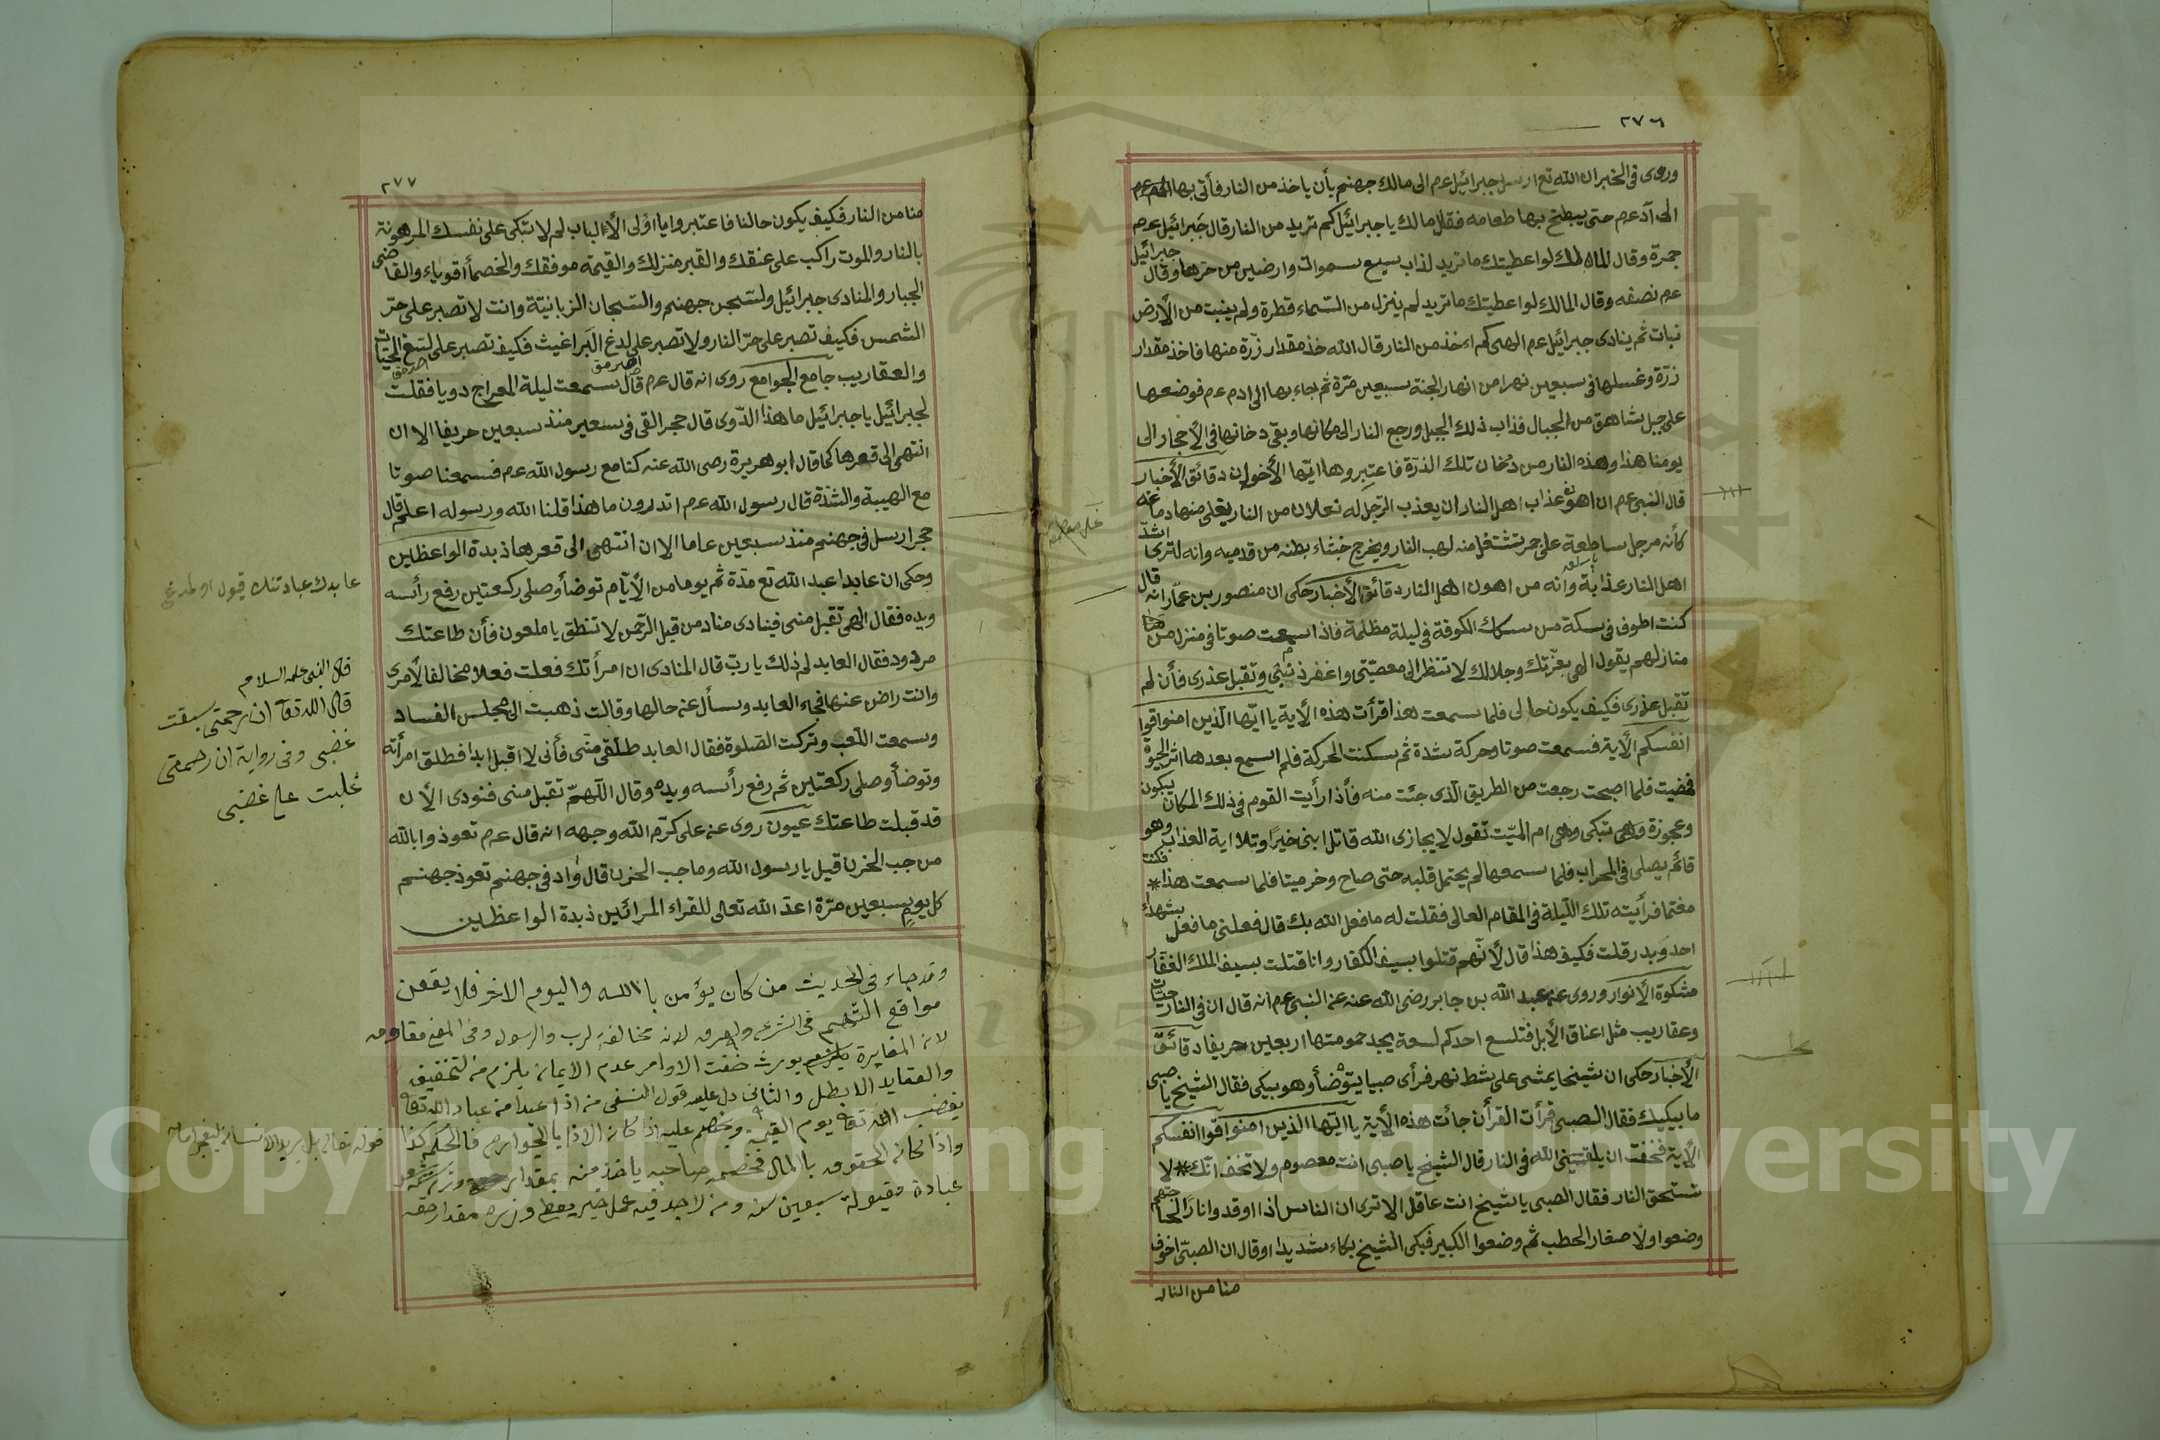 ٢٧٦
وروى فى الخبر ان الله تع ارسل جبرائيل عم الى مالك جهنم بأن ياخذ من النار فأتى بها
الى آدعم حتى يبطخ بها طعامه فقال مالك يا جبرائيل كم تريد من النار قال جبرائيل عم
جمرة وقال المالك لو اعطيتك ما تريد لذاب سبع سموات وارضين من حرها وقال جبرائيل
عم نصفه وقال المالك لو اعطيتك ما تريد لم ينزل من السماء قطرة ولم ينبت من الأرض
نبات ثم ينادى جبرائيل عم الهى كم اءخذ من النار قال الله خذ مقدار زرّة منها فاخذ مقدار
زرّة وغسلها فى سبعين نهرا من انهار الجنة سبعين مرّة ثم جاء بها الى ادم عم فوضعها
على جبل شاهق من الجبال فذاب ذلك الجبل ورجع النار الى مكانها وبقى دخانها فى الأحجار الى
يومنا هذا وهذه النار من دخان تلك الذرّة فاعتبروها ايّها الأخوان دقائق الأخبار
قال النبى عم ان اهون عذاب اهل النار ان يعذب الرّجل له نعلان من النار يغلى منها دماغه
كأنه مرجل ساطعة على جمر تشتغل منه لهب النار ويخرج خشاء بطنه من قدميه وانه لترى اشدّ
اهل النار عذابة وانه من اهون اهل النار دقائق الأخبار حكى ان منصور بن عمّار انه قال
كنت اطوف فى سكة من سكك الكوفة فى ليلة مظلمة فاذا سمعت صوتا فى منزل من
منازلهم يقول الهى بعزّتك وجلالك لا تنظر الى معصيّتى واغفر ذنبى وتقبل عذرى فأن لم
تقبل عذرى فكيف يكون حالى فلما سمعت هذا قرأت هذه الأية يا ايّها الّذين امنوا قوا
انفسكم الأية فسمعت صوتا وحركة شدة ثم سكنت الحركة فلم اسمع بعدها اثر الحيوة
فمضيت فلما اصبحت رجعت من الطريق الّذى جئت منه فأذا رأيت القوم فى ذلك المكان يبكون
وعجوزة وهى تبكى وهى ام الميّت تقول لا يجازى الله قاتل ابنى خيرا وتلا اية العذاب وهو
قائم يصلى فى المحراب فلما سمعها لم يحتمل قلبه حتى صاح وخر ميتا فلما سمعت هذا فكنت
مغتما فرأيته تلك اللّيلة فى المقام العالى فقلت له ما فعل الله بك قال فعلنى ما فعل بشهداء
احد وبدر قلت فكيف هذا قال لأنهم قتلوا بسيف الكفار وانا قتلت بسيف الملك الغفار
مشكوة الأنوار وروى عن عبد الله بن جابر رضى الله عنه عن النبى عم انه قال ان فى النار حيات
وعقاريب مثل اعناق الأبل فتلسع احدكم لسعة يجد حموتها اربعين حريفا دقائق
الأخبار حكى ان شيخا يمشى على شط نهر فرأى صبيا يتوضأ وهو يبكى فقال الشيخ يا صبى
ما يبكيك فقال الصبى قرأت القرأن جائت هذه الأية يا ايّها الّذين امنوا قوا انفسكم
الأية فخفت ان يلقينى الله فى النار قال الشيخ يا صبى انت معصوم ولا تخف انك لا
تستحق النار فقال الصبى يا شيخ انت عاقل الا ترى ان الناس اذا اوقدوا نارا لحاجتهم
وضعوا ولا صغار الحطب ثم وضعوا الكبير فبكى الشيخ بكاء شديدا وقال ان الصبىّ اخوف
منا من النار
٢٧٧
منا من النار فكيف يكون حالنا فاعتبروا يا اولى الألباب لم لا تبكى على نفسك المرهونة
بالنار والموت راكب على عنقك والقبر منزلك والقيمة موفقك والخصماء أقوياء والقاضى
الجبار والمنادى جبرائيل ولسّجن جهنم والسّجان الزبانيّة وانت لا تصبر على حرّ
الشمس فكيف تصبر على حرّ النار ولا تصبر على لدغ البراغيث فكيف تصبر على لسغ الحيّات
والعقاريب جامع الجوامع روى انه قال عم قال سمعت ليلة المعراج دويا فقلت
لجبرائيل يا جبرائيل ما هذا الدّوى قال حجر القى فى سعير منذ سبعين حريفا الاٰن
انتهى الى قعرها كما قال ابو هريرة رضى الله عنه كنا مع رسول الله عم فسمعنا صوتا
مع الهيبة والشدّة قال رسول الله عم اتدرون ما هذا قلنا الله ورسوله اعلم قال
حجر ارسل فى جهنم منذ سبعين عاما الاٰن انتهى الى قعرها ذبدة الواعظين
وحكى ان عابدا عبد الله تع مدّة ثم يوما من الأيّام توضأ وصلى ركعتين رفع رأسه
ويده فقال الهى تقبل منى فينادى مناد من قبل الرّحمن لا تنطق يا ملعون فأن طاعتك
مردود فقال العابد لم ذلك يا ربّ قال المنادى ان امرأتك فعلت فعلا مخالفا لأمرى
وانت راض عنها فجاء العابد وسأل عنه حالها وقالت ذهبت الى مجلس الفساد
وسمعت اللّعب وتركت الصّلوة فقال العابد طلّقى منّى فأنى لا اقبل ابدا فطلق امرأته
وتوضأ وصلى ركعتين ثم رفع رأسه ويده وقال اللّهمّ تقبل منى فنودى الأن
قد قبلت طاعتك عيون روى عن على كرّم الله وجهه انه قال عم تعوذوا بالله
من جب الحزن قيل يا رسول الله وما جب الحزن قال واد فى جهنم تعوذ جهنم
كل يوم سبعين مرّة اعدّ الله تعالى للقراء المرائين ذبدة الواعظين
وقد جاء فى الحديث من كان يؤمن با الله واليوم الاخر فلا يقفن
مواقع التهم فى الشرع والعرف لانه مخالفة لرب والرسول
والعقايد الا بطل والثانى دل عليه قول النسفى من اذا عبدا من عباد الله تعالى
يغضب الله تعالى يوم القيمة ويخصم عليه اذا كانه الاذا با الجوارح فالحكم كذا
واذا كانه الحقوق با المال فخصم صاحبه ياخذ منه بمقدار
عبادة مقبولة سبعين سنة
عابدك عبادتنك قبول اولمدغى
قال النبى عليه السلام
قال الله تعآ ان رحمتى سبقت
غضبى وفى رواية ان رحمتى
غلبت على غضبى
قوله تعالى بل يريد الانسان ليفجر امامه
Copyright © King Saud University
1957